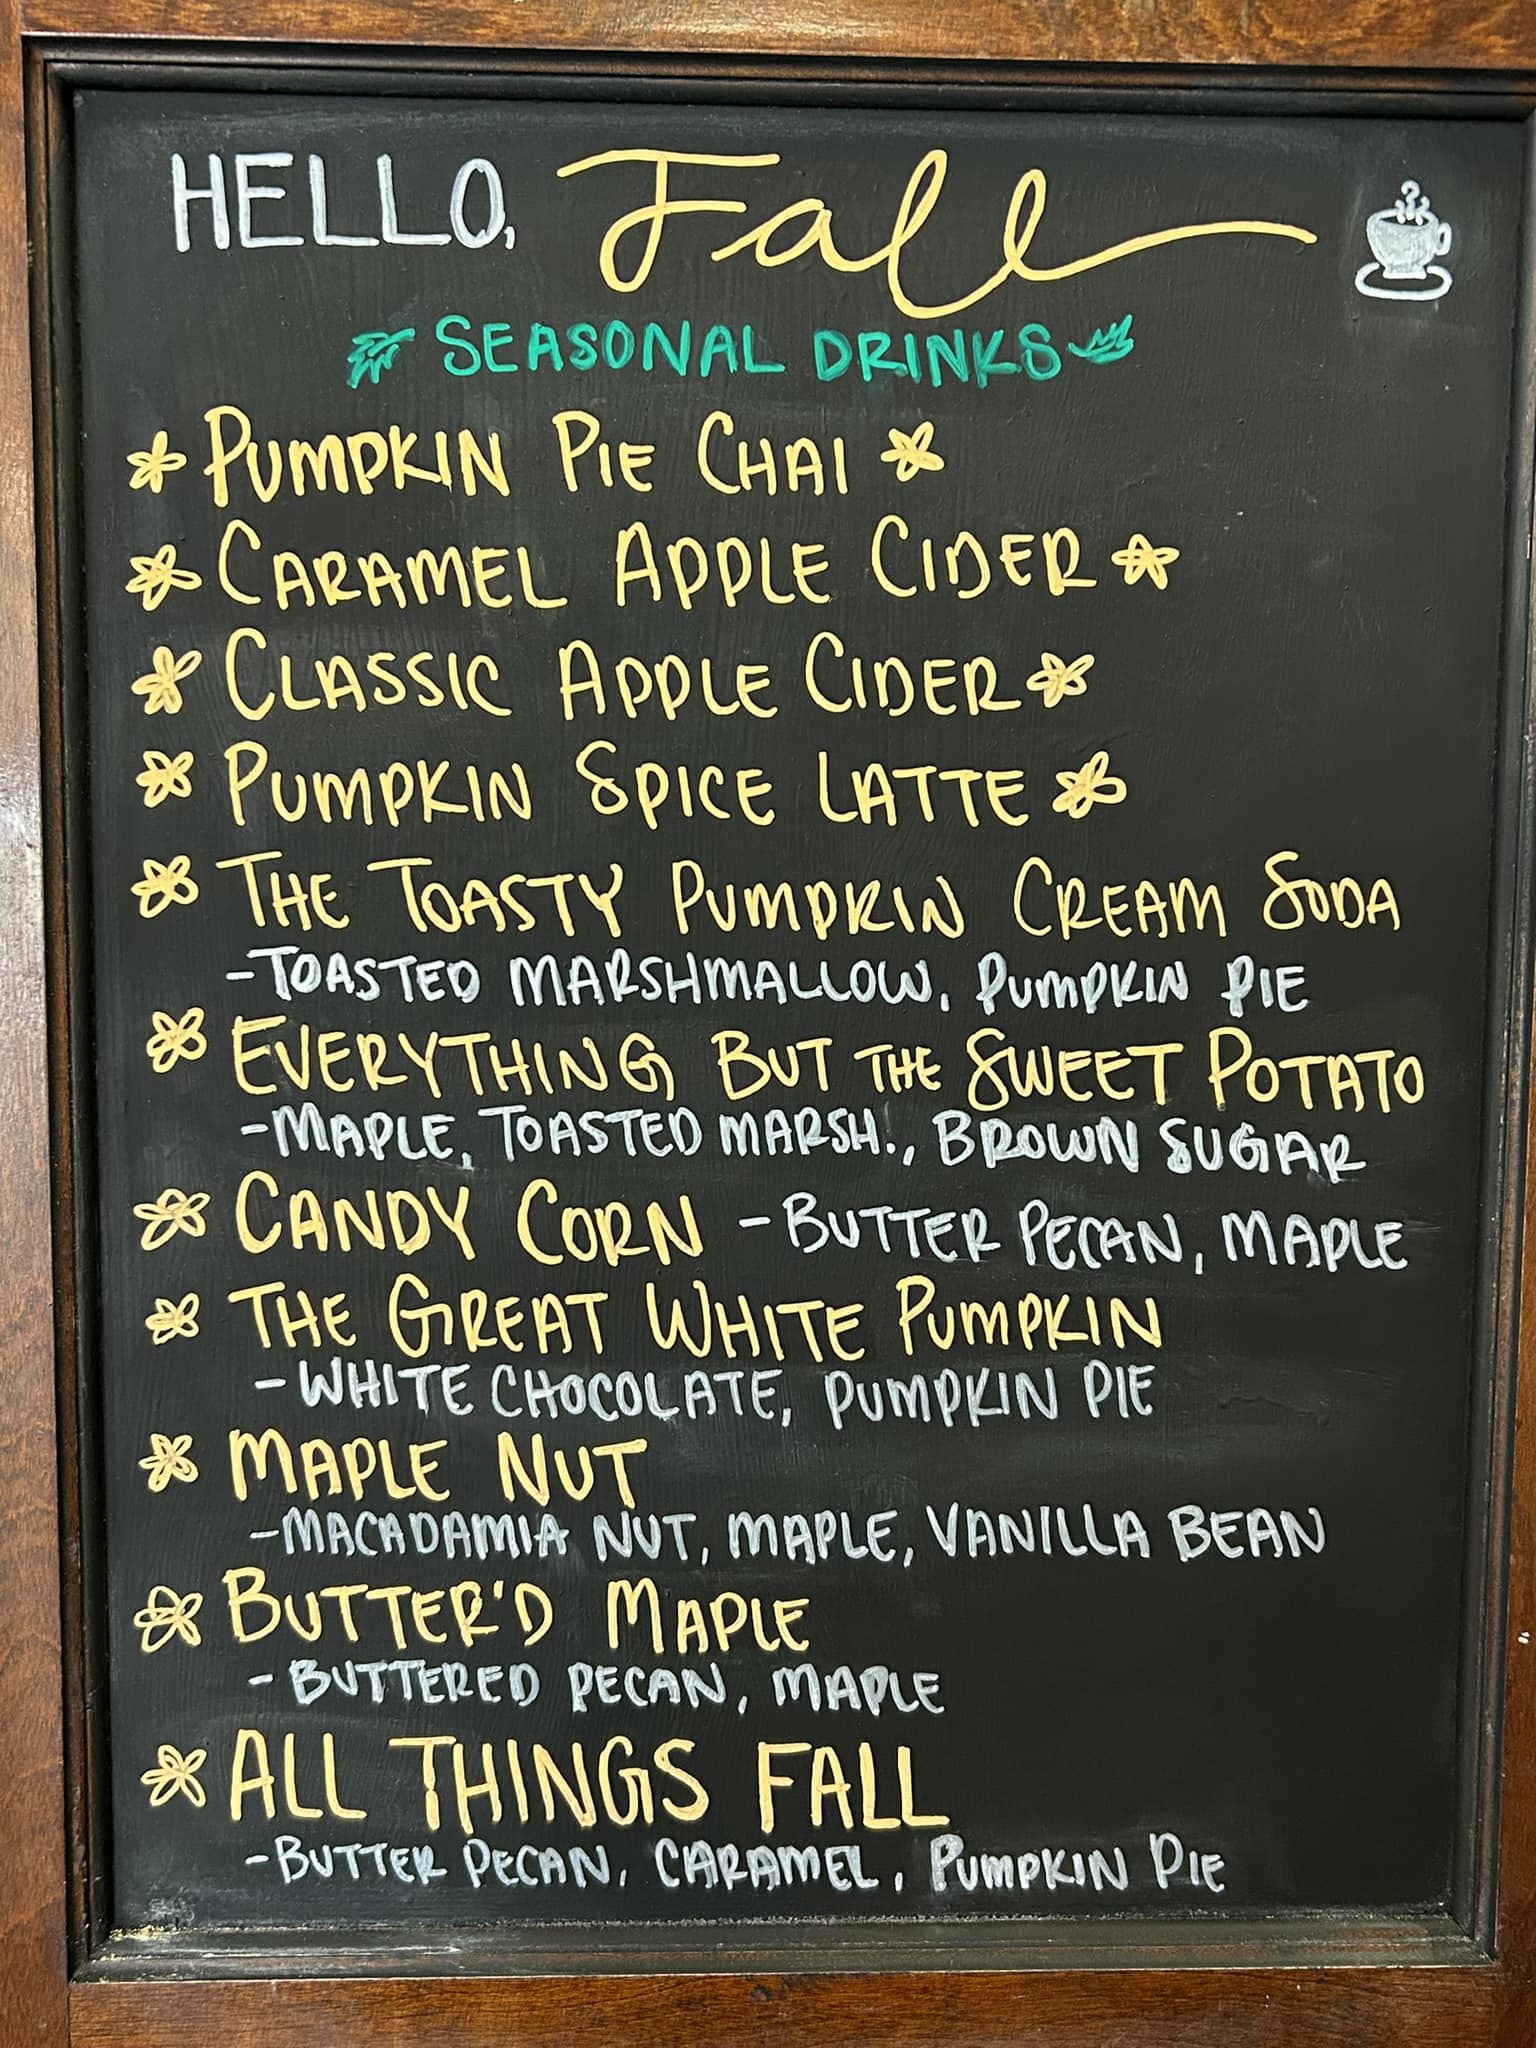 HELLO, Fall
SEASONAL DRINKS
PUMPKIN PIE CHAI
CARAMEL APPLE CIDER
CLASSIC APPLE CIDER
PUMPKIN SPICE LATTE
THE TOASTY PUMPKIN CREAM SODA
-TOASTED MARSHMALLOW, PUMPKIN PIE
EVERYTHING BUT THE SWEET POTATO
-MAPLE, TOASTED MARSH., BROWN SUGAR
CANDY CORN -BUTTER PECAN, MAPLE
THE GREAT WHITE PUMPKIN
-WHITE CHOCOLATE, PUMPKIN PIE
MAPLE NUT
-MACADAMIA NUT, MAPLE, VANILLA BEAN
BUTTER'D MAPLE
-BUTTERED PECAN, MAPLE
ALL THINGS FALL
-BUTTER PECAN, CARAMEL, PUMPKIN PIE